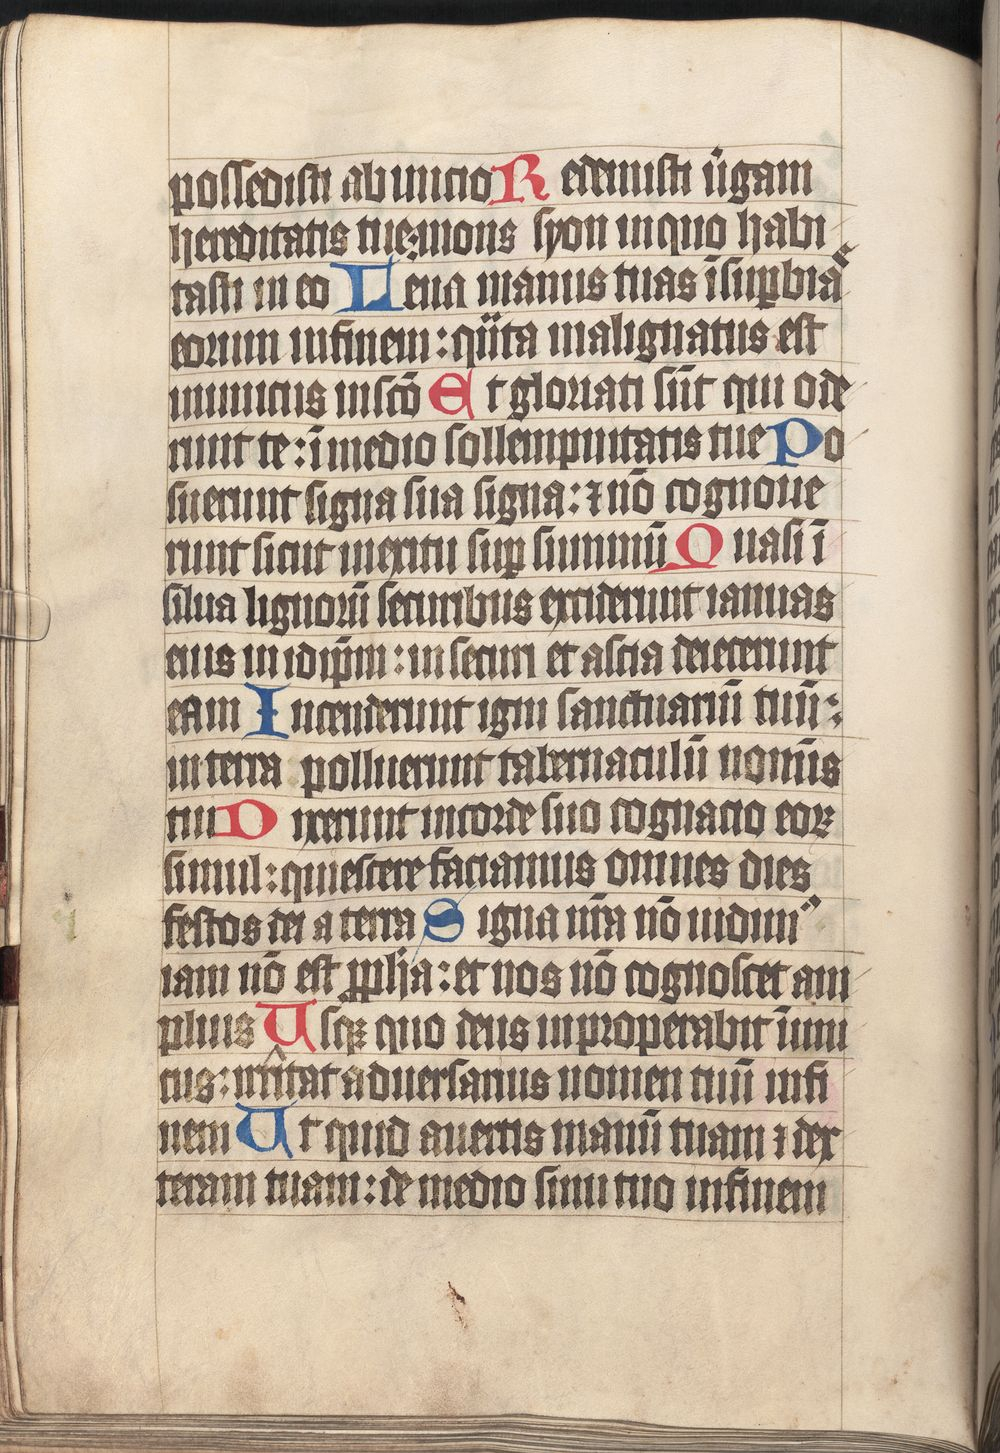 possedisti ab inicio Redemisti u̇gam
hereditatis tue: mons syon in quo habi
tasti in eo Leua manus tuas ī suꝑbiaˢ
eorum in finem: qu̇ta malignatus est
inimicus in sc̄o Et gloriati sūt qui ode
runt te: ī medio sollempnitatis tue Po
suerunt signa sua signa: ⁊ nō cognoue
runt sicut in exitu suꝑ summū Quasi ī
silua lignorū securibus exciderunt ianuas
eius in idip̄m: in securi et ascia deiecerunt
eam Incenderunt igni sanctuariū tuū:
in terra polluerunt tabernaculū nomīs
tui Dixerunt in corde suo cognacio eoꝝ
simul: quiescere faciamus omnes dies
festos dei a terra Signa nr̄a nō uidimꝰ
iam nō est ꝓph̄a: et nos nō cognoscet am
plius Usqꝫ quo deus improperabit īimi
cus: irritat aduersarius nomen tuū in fi
nem Ut quid auertis manū tuam ⁊ dex
teram tuam: de medio sinu tuo in finem